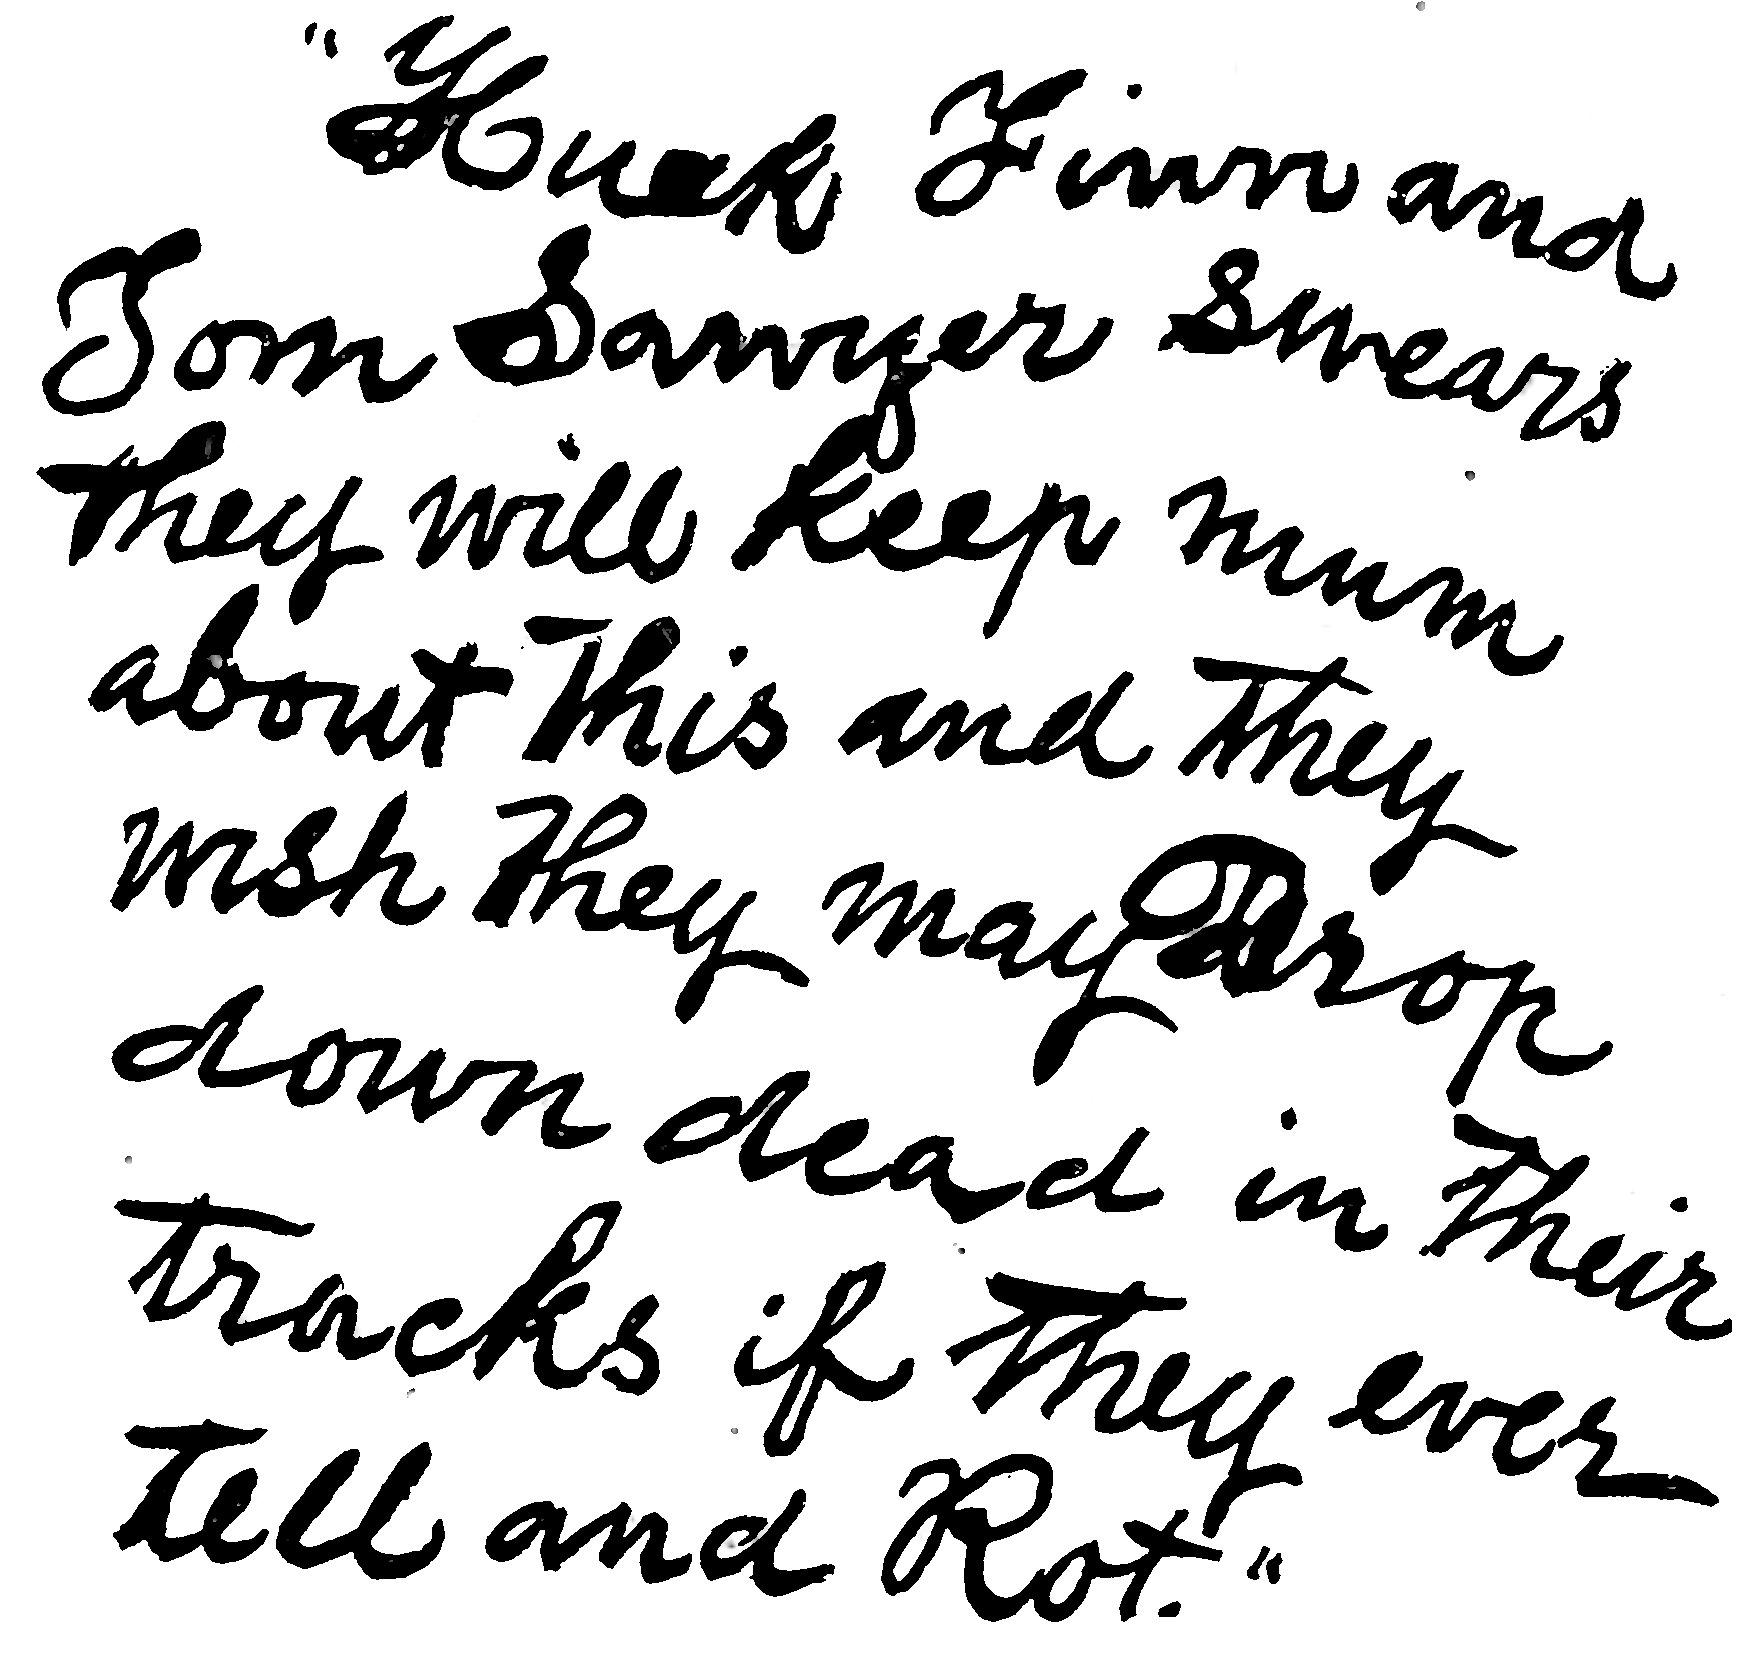 "Huck Finn and
Tom Sawyer swears
they will keep mum
about this and they
wish they may Drop
down dead in their
tracks if they ever
tell and Rot."